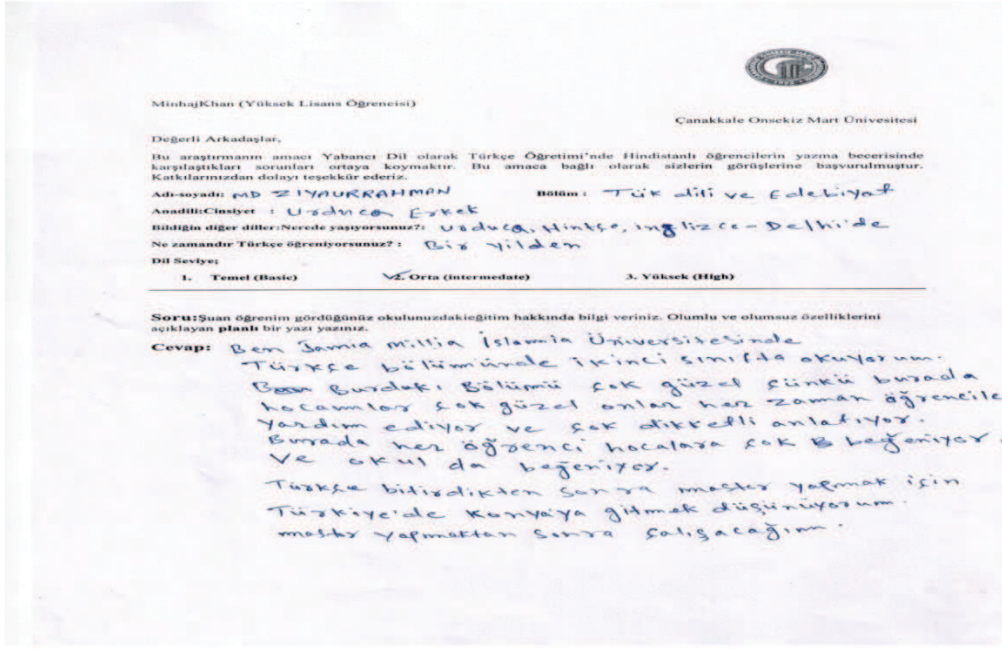 MinhajKhan (Yüksek Lisans Öğrencisi)
Çanakkale Onsekiz Mart Ünivesitesi
Değerli Arkadaşlar,
Bu araştırmanın amacı Yabancı Dil olarak Türkçe Öğretimi'nde Hindistanlı öğrencilerin yazma becerisinde
karşılaştıkları sorunları ortaya koymaktır. Bu amaca bağlı olarak sizlerin görüşlerine başvurulmuştur.
Katkılarınızdan dolayı teşekkür ederiz.
Adı-soyadı: MD ZIYAURRAHMAN Bölüm : Tük dili ve Edebiyat
Anadili:Cinsiyet : Urduca Erkek
Bildiğin diğer diller:Nerede yaşıyorsunuz?: Urduca, Hintçe, inglizce - Delhi'de
Ne zamandır Türkçe öğreniyorsunuz? : Bir yilden
Dil Seviye;
1. Temel (Basic) ✓2. Orta (intermedate) 3. Yüksek (High)
Soru:Şuan öğrenim gördüğünüz okulunuzdakieğitim hakkında bilgi veriniz. Olumlu ve olumsuz özelliklerini
açıklayan planlı bir yazı yazınız.
Cevap: Ben Jamia Millia İslamia Üniversitesinde
Türkçe bölümünde ikinci sınıfda okuyorum.
Burdaki Bölümü çok güzel çünkü burada
hocamlar çok güzel onlar her zaman öğrencile
yardım ediyor ve çok dikketli anlatıyor.
Burada her öğrenci hocalara çok B beğeniyor.
ve okul da beğeniyor.
Türkçe bitirdikten sonra master yapmak için
Türkiye'de Konya'ya gitmek düşünüyorum.
master yapmaktan sonra çalışacağım.